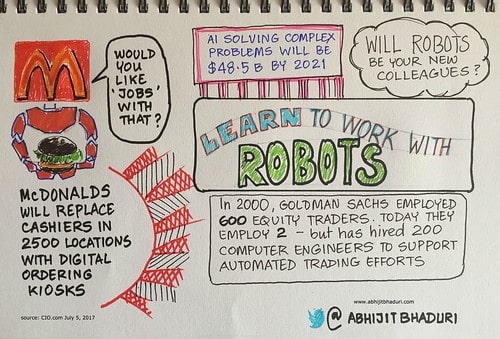 WOULD
YOU
LIKE
'JOBS'
WITH
THAT?
AI SOLVING COMPLEX
PROBLEMS WILL BE
$48.5 B BY 2021
WILL ROBOTS
BE YOUR NEW
COLLEAGUES?
LEARN TO WORK WITH
ROBOTS
McDONALDS
WILL REPLACE
CASHIERS IN
2500 LOCATIONS
WITH DIGITAL
ORDERING
KIOSKS
In 2000, GOLDMAN SACHS EMPLOYED
600 EQUITY TRADERS. TODAY THEY
EMPLOY 2 - but has hired 200
COMPUTER ENGINEERS TO SUPPORT
AUTOMATED TRADING EFFORTS
source: CIO.com July 5, 2017
www.abhijitbhaduri.com
@ ABHIJIT BHADURI